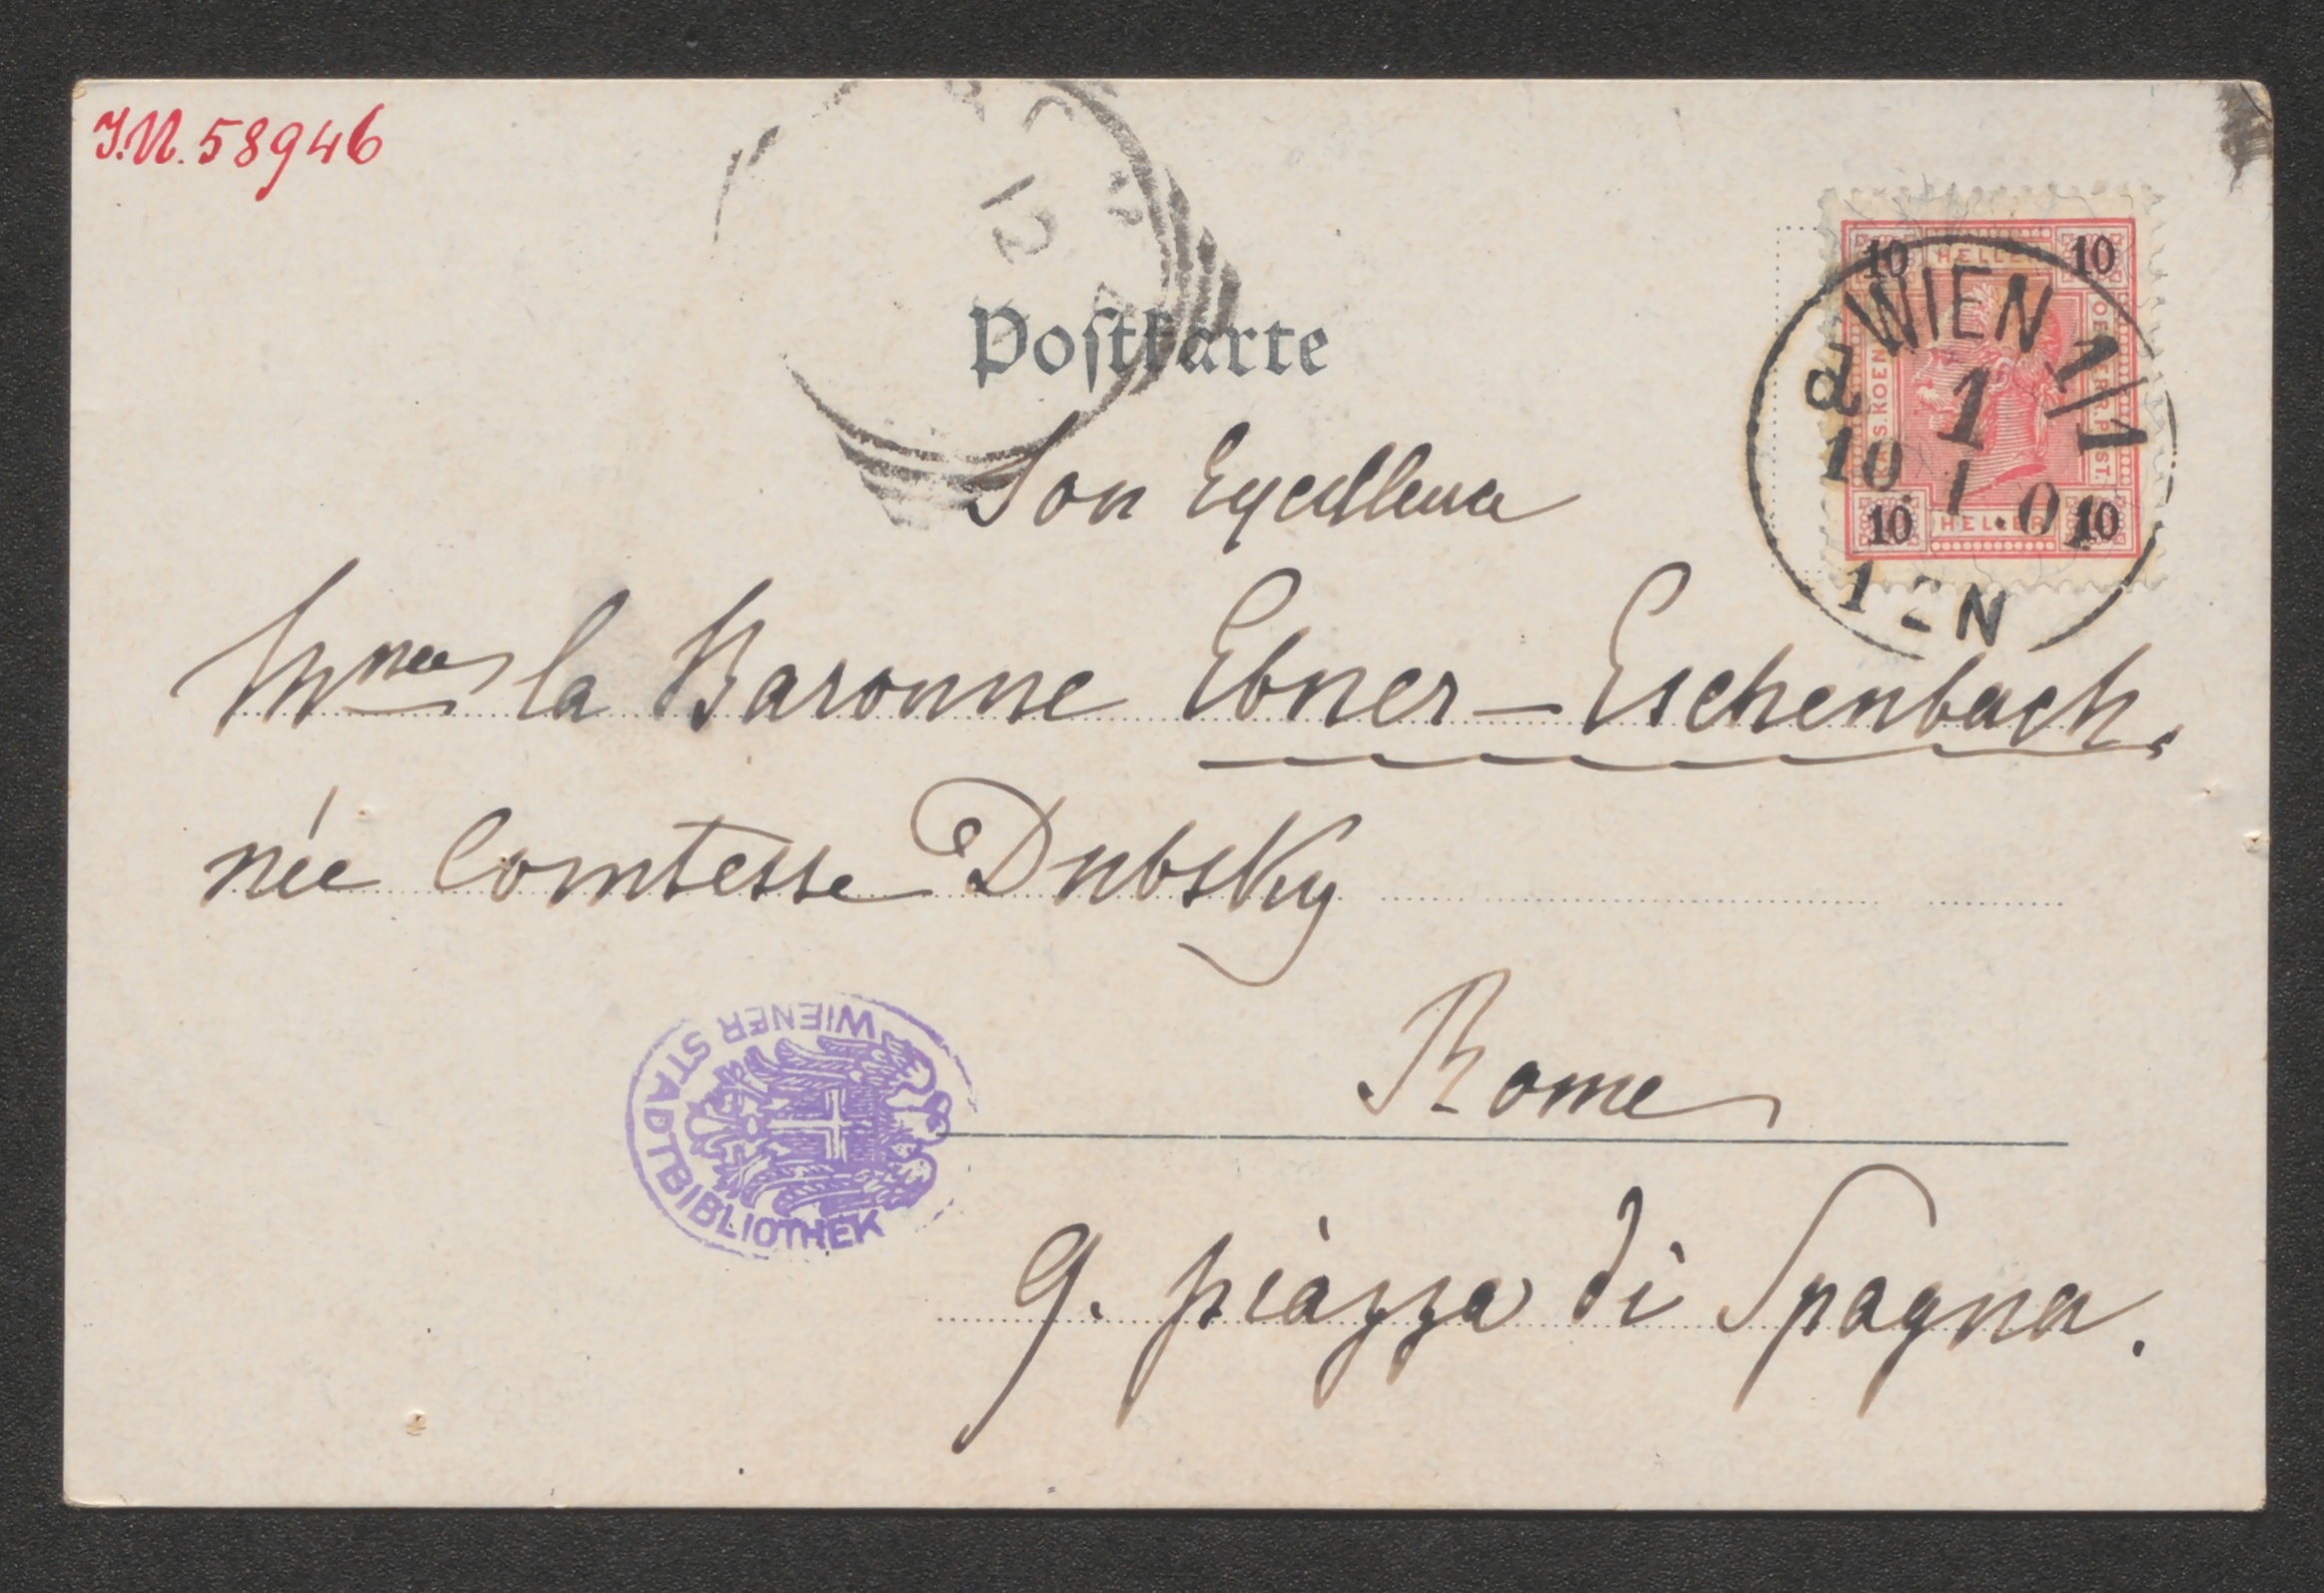 J.N. 58946
12
Postkarte
10 HELLER 10
WIEN 1/1
d 1
10 1.01
10 HELLER 10
12N
Son Excellence
Mme la Baronne Ebner-Eschenbach,
née Comtesse Dubsky
WIENER STADTBIBLIOTHEK
Rome
9. piazza di Spagna.